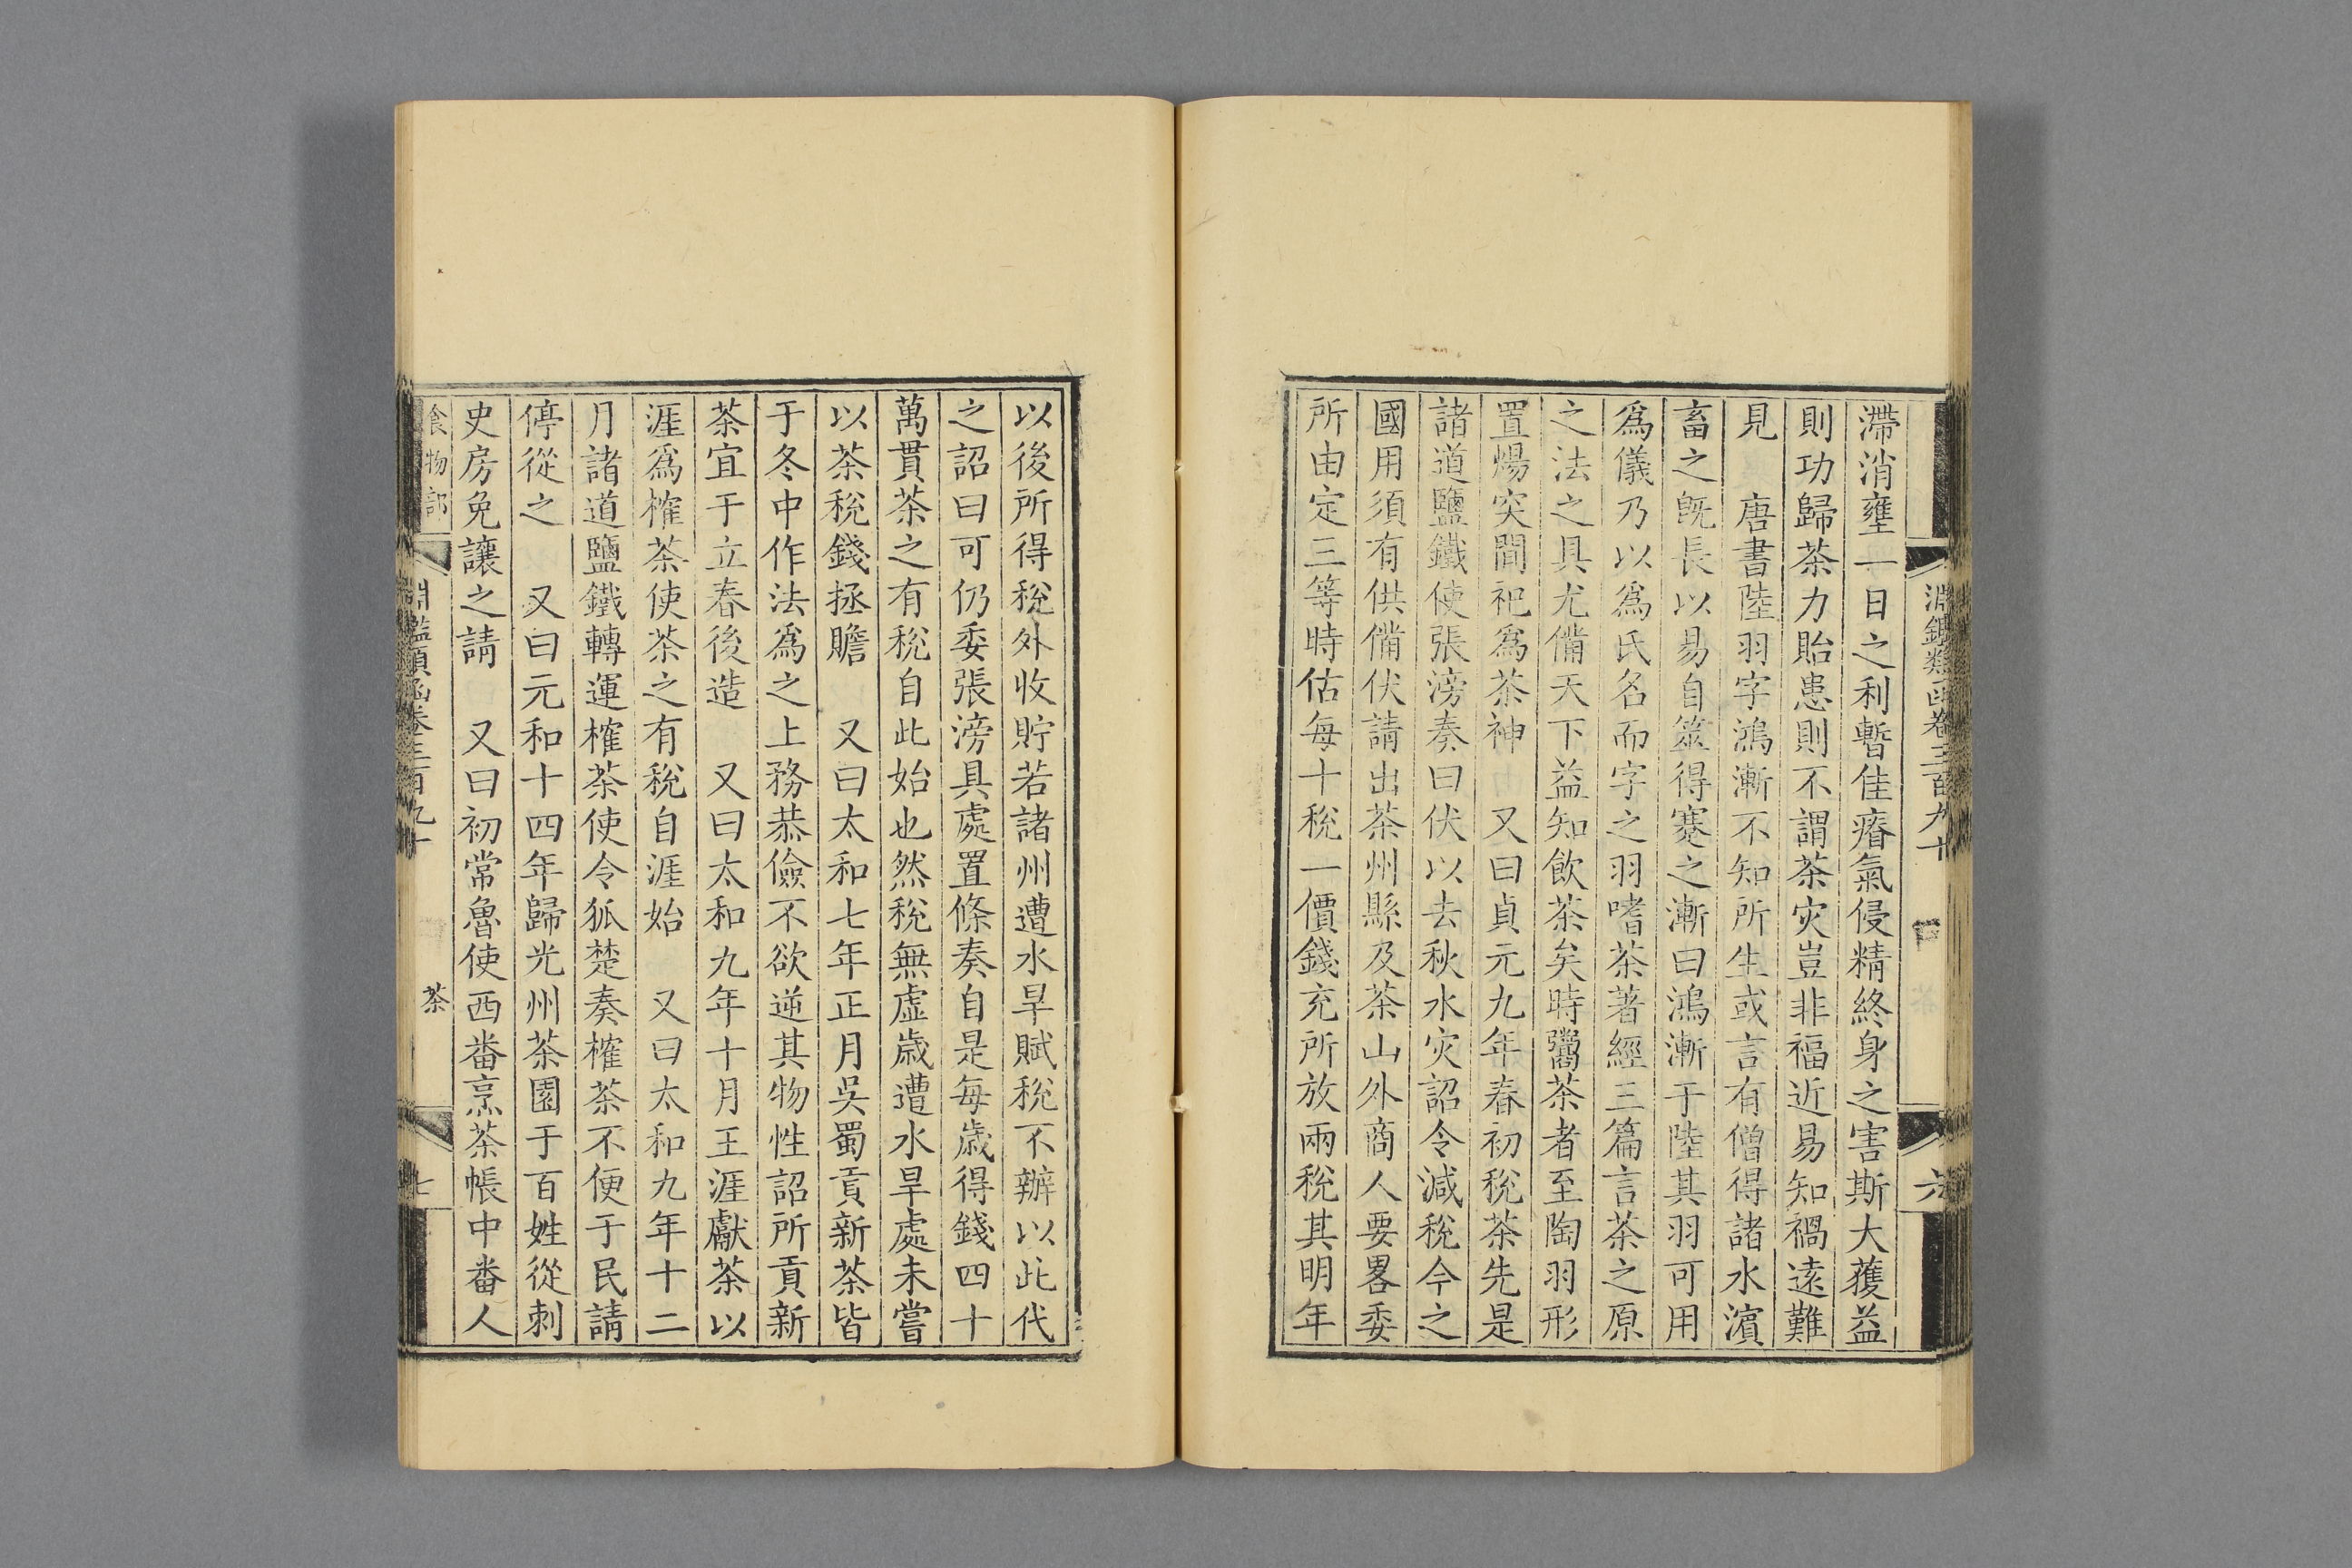 淵鑑類函卷三百九十
六
滯消壅一日之利暫佳瘠氣侵精終身之害斯大獲益
則功歸茶力貽患則不謂茶灾豈非福近易知禍遠難
見　唐書陸羽字鴻漸不知所生或言有僧得諸水濱
畜之旣長以易自筮得蹇之漸曰鴻漸于陸其羽可用
爲儀乃以爲氏名而字之羽嗜茶著經三篇言茶之原
之法之具尤備天下益知飲茶矣時鬻茶者至陶羽形
置煬突間祀爲茶神　又曰貞元九年春初稅茶先是
諸道鹽鐵使張滂奏曰伏以去秋水灾詔令減稅今之
國用須有供備伏請出茶州縣及茶山外商人要畧委
所由定三等時估每十稅一價錢充所放兩稅其明年
以後所得稅外收貯若諸州遭水旱賦稅不辦以此代
之詔曰可仍委張滂具處置條奏自是每歲得錢四十
萬貫茶之有稅自此始也然稅無虛歲遭水旱處未嘗
以茶稅錢拯贍　又曰太和七年正月吳蜀貢新茶皆
于冬中作法爲之上務恭儉不欲逆其物性詔所貢新
茶宜于立春後造　又曰太和九年十月王涯獻茶以
涯爲榷茶使茶之有稅自涯始　又曰太和九年十二
月諸道鹽鐵轉運榷茶使令狐楚奏榷茶不便于民請
停從之　又曰元和十四年歸光州茶園于百姓從刺
史房免讓之請　又曰初常魯使西番烹茶帳中番人
食物部
淵鑑類函卷三百九十
茶
七